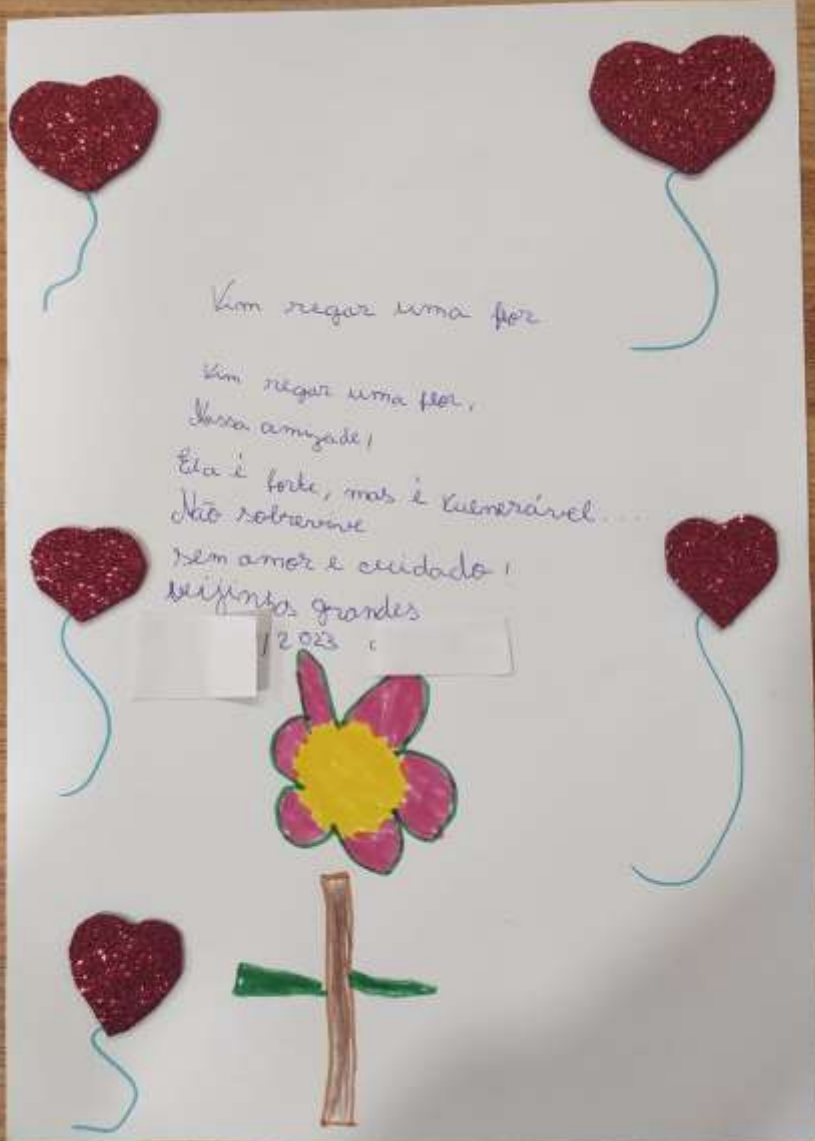 Vim regar uma flor
Vim regar uma flor,
Nossa amizade!
Ela é forte, mas é vulnerável...
Não sobrevive
sem amor e cuidado!
Beijinhos grandes
/2023